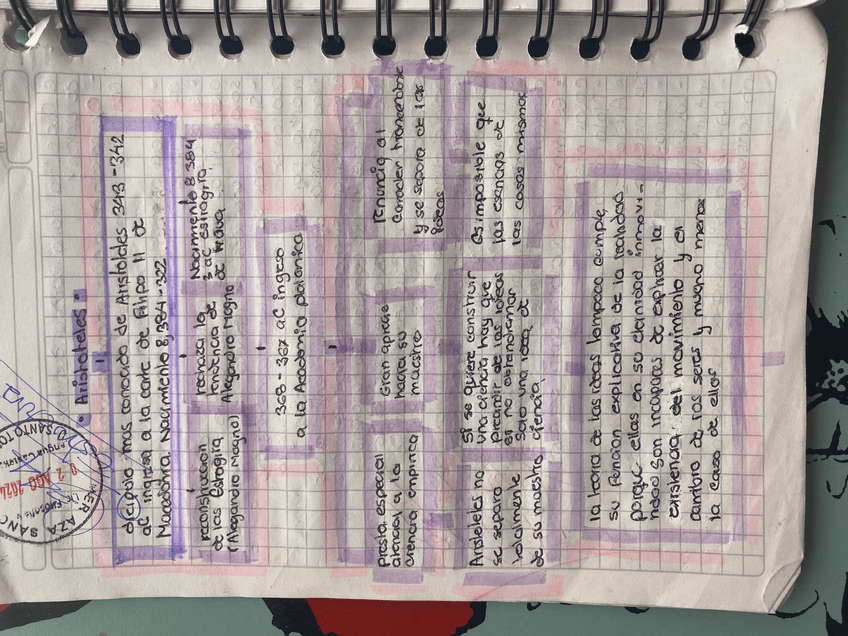 • Aristoteles •
dicipulo mas conocido de Aristoteles 343-342
aC ingreso a la corte de Filipo II de
Macedonia. Nacimiento 8,384-322
reconstrucion
de las Estragira
(Alegandro Magno)
rechaza la
tendencia de
Alegandro Magno
Nacimiento 8 384
3 aC estragira,
de
368-367 aC ingreso
a la Academia platonica
Presta especial
atencial a la
ciencia empirica
Gran aprecio
hacia su
maestro
renuncia al
caracter trancendente
y se separa de las
ideas
Aristeles no
se separo
totalmente
de su maestro
si se quiere construir
una ciencia hay que
precindir de las ideas
si no obtendriamos
solo una idea de
ciencia
es imposible que
las esencias de
las cosas mismas
la teoria de las ideas tampoco cumple
su funcion explicativa de la realidad
porque ellas en su eternidad inmovi-
lidad son incapaces de explicar la
existencia del movimiento y el
cambio de los seres y mucho menos
la causa de ellos
02 AGO 2024
SANTO TO